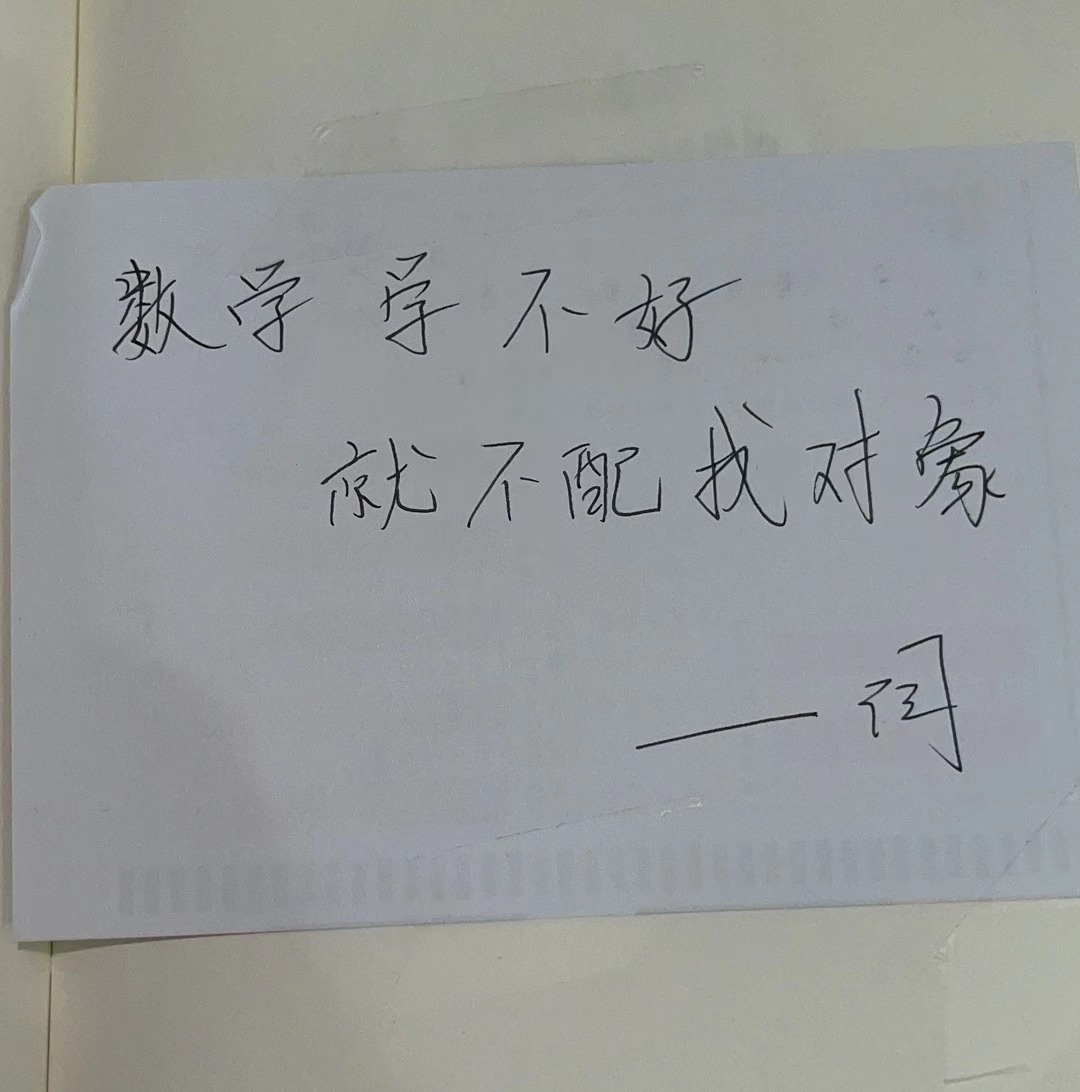 数学学不好
就不配找对象
——闫